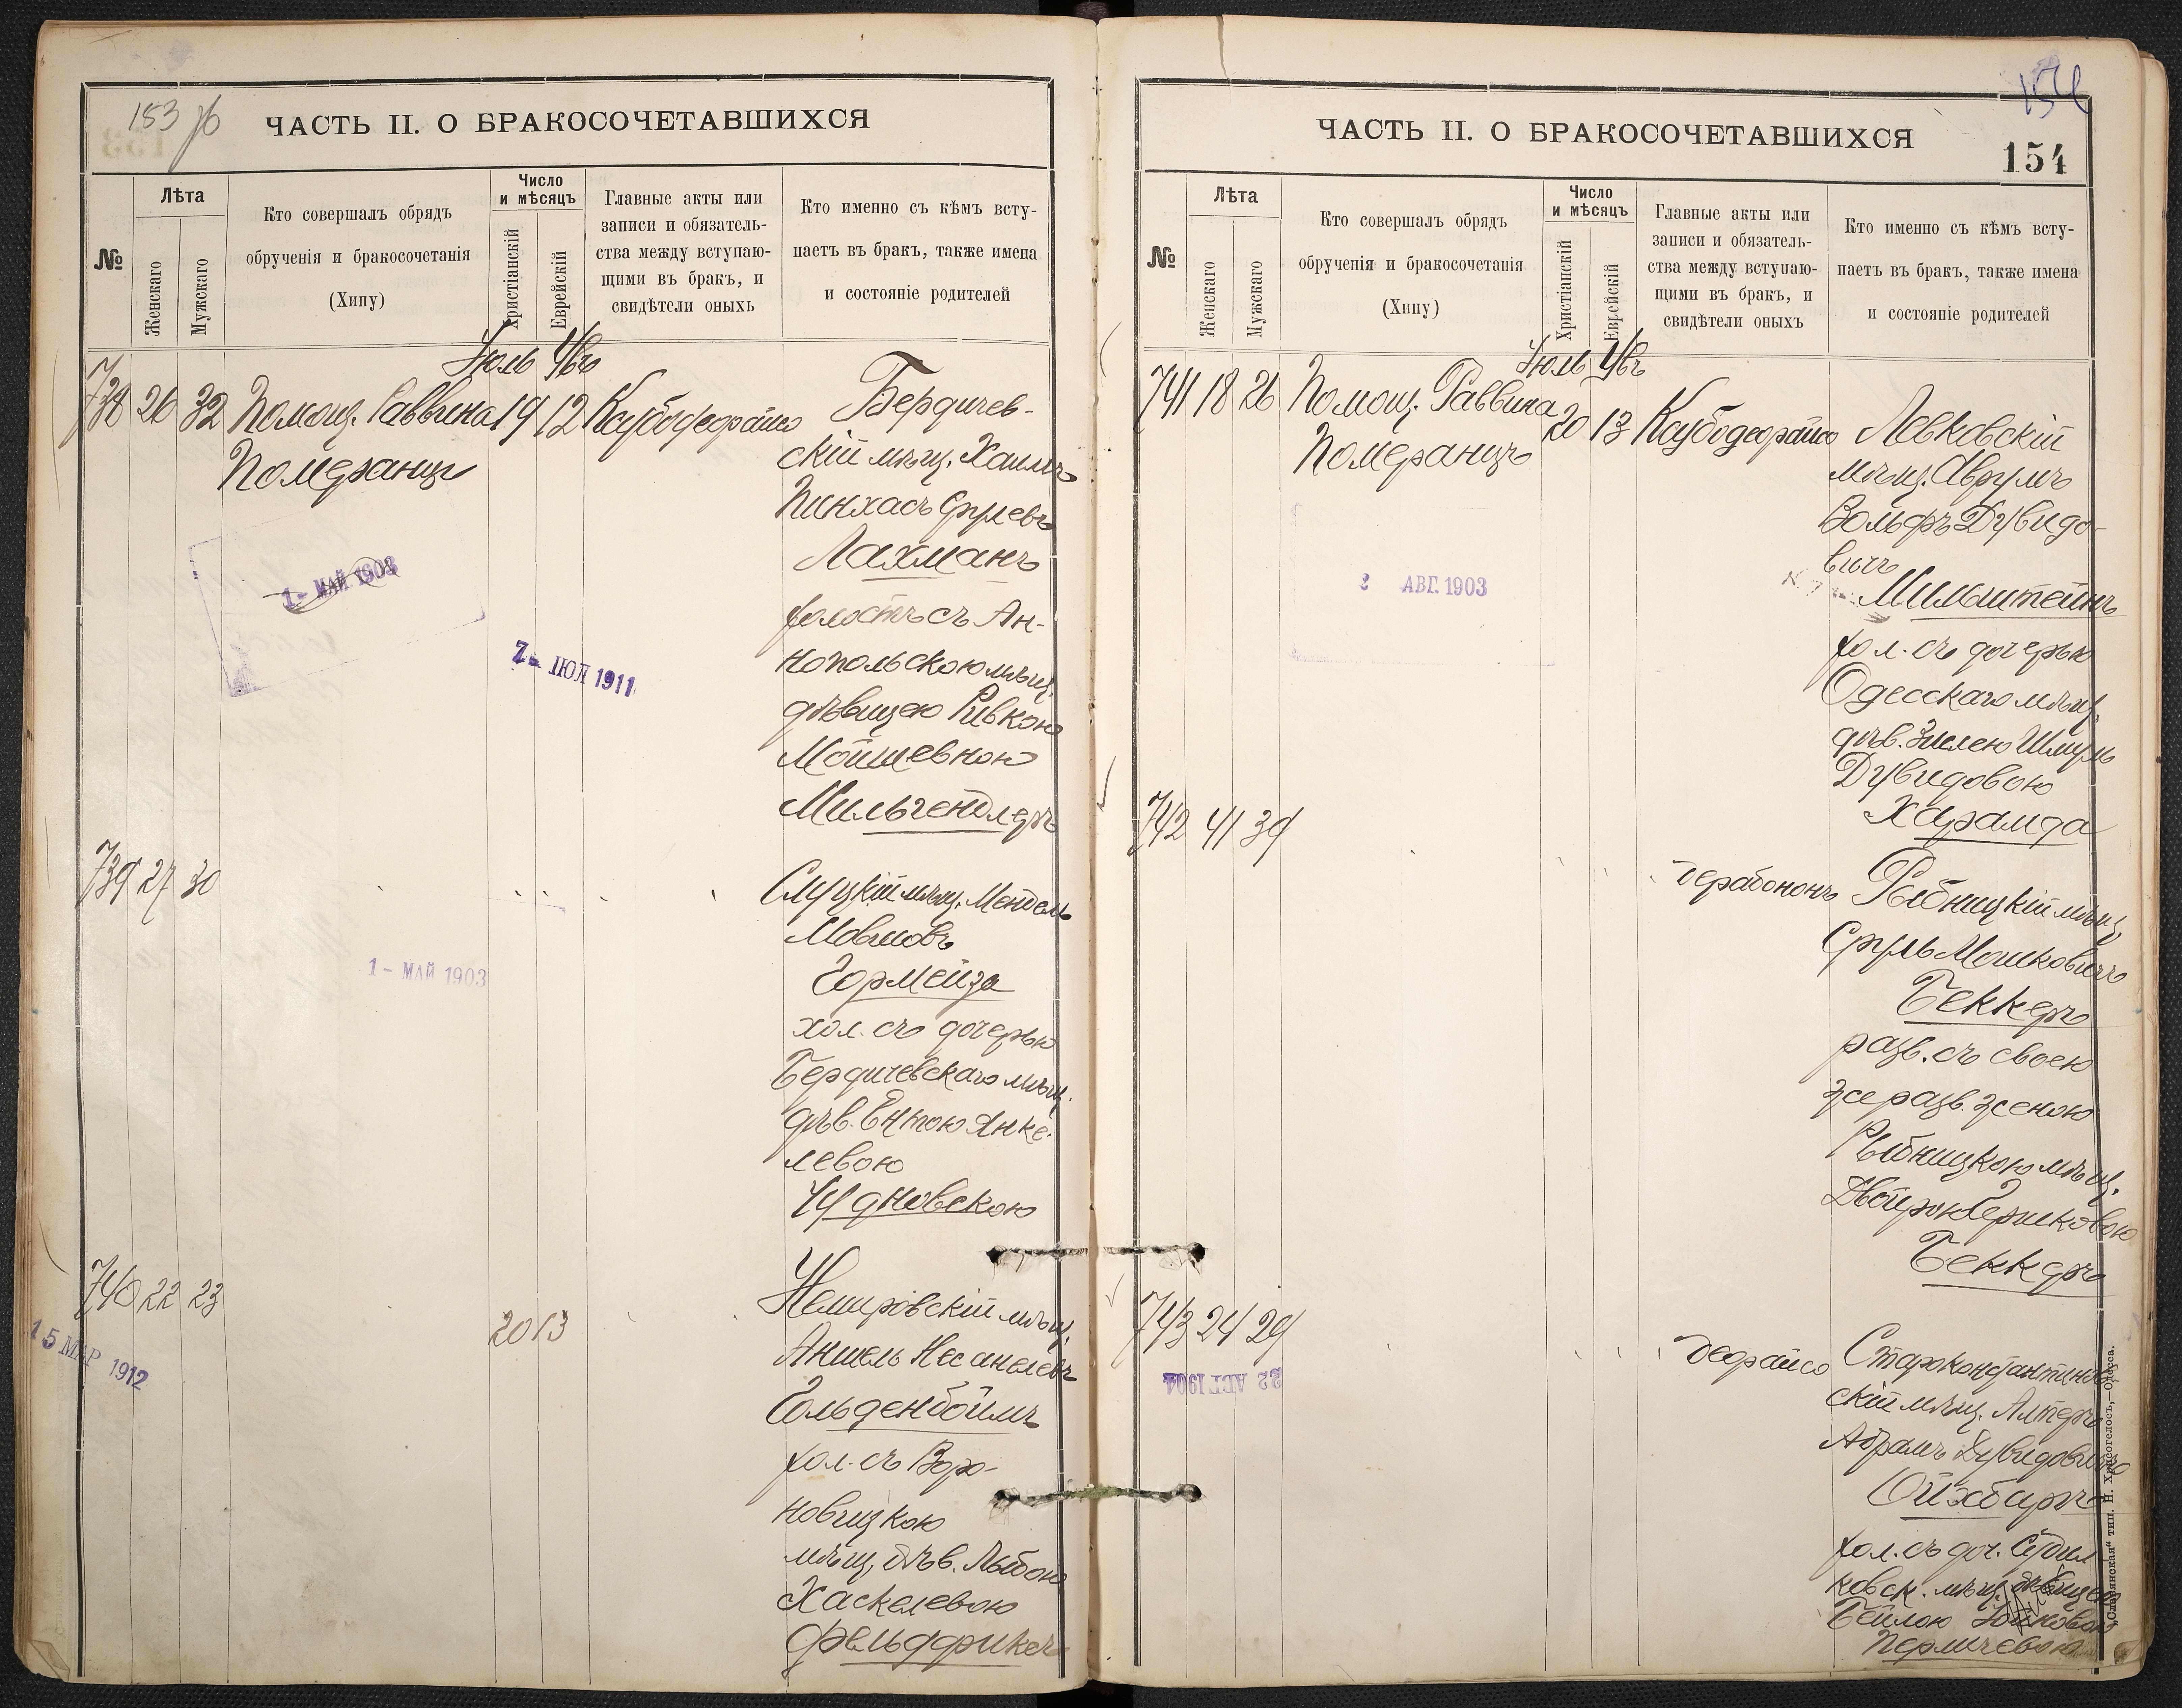 153 об
ЧАСТЬ II. О БРАКОСОЧЕТАВШИХСЯ
№
Лѣта
Женскаго
Мужскаго
Кто совершалъ обрядъ
обрученія и бракосочетанія
(Хипу)
Число
и мѣсяцъ
Христіанскій
Еврейскій
Главные акты или
записи и обязатель-
ства между вступаю-
щими въ бракъ, и
свидѣтели оныхъ
Кто именно съ кѣмъ всту-
паетъ въ бракъ, также имена
и состояніе родителей
Іюль Увъ
738 26 32 Помощ. Раввина 19 12
Померанцъ
Бердичев-
скій мѣщ. Хаимъ
Пинхасъ Срулевъ
Лахманъ
холостъ съ Ан-
нопольскою мѣщ.
дѣвицею Ривкою
Мошиевною
Мильгендлеръ
1 - МАЙ 1903
7 - ІЮЛ 1911
739 27 30
Слуцкій мѣщ. Мендель
Мовшовъ
Гормейза
хол. съ дочерью
Бердичевскаго мѣщ.
дѣв. Ентою Янке-
левою
Чудновскою
1 - МАЙ 1903
740 22 23
20 13
Немировскій мѣщ.
Аншель Несанелевъ
Гольденбоймъ
хол. съ Воро-
новицкою
мѣщ. дѣв. Лыбою
Хаскелевою
Фельдфиксъ
15 МАР 1912
154
ЧАСТЬ II. О БРАКОСОЧЕТАВШИХСЯ
154
№
Лѣта
Женскаго
Мужскаго
Кто совершалъ обрядъ
обрученія и бракосочетанія
(Хипу)
Число
и мѣсяцъ
Христіанскій
Еврейскій
Главные акты или
записи и обязатель-
ства между вступаю-
щими въ бракъ, и
свидѣтели оныхъ
Кто именно съ кѣмъ всту-
паетъ въ бракъ, также имена
и состояніе родителей
Іюль Увъ
741 18 26 Помощ. Раввина 20 13
Померанцъ
Левковскій
мѣщ. Аврумъ
Вольфъ Дувидо-
вичъ
Мильштейнъ
хол. съ дочерью
Одесскаго мѣщ.
дѣв. Зислею Шмуль
Дувидовою
Харамда
2 АВГ. 1903
742 41 39
дерабононъ Рыбницкій мѣщ.
Сруль Мошковичъ
Беккеръ
разв. съ своею
же разв. женою
Рыбницкою мѣщ.
Двойрою Гершковою
Беккеръ
743 24 29
деорайсо Староконстантинов-
скій мѣщ. Алтеръ
Абрамъ Дувидовичъ
Ойхбаръ
хол. съ доч. Судил-
ковск. мѣщ. дѣвицею
Бейлою
22 АВГ 1904
„Славянская“ тип. Н. Хрисогелосъ,—Одесса.